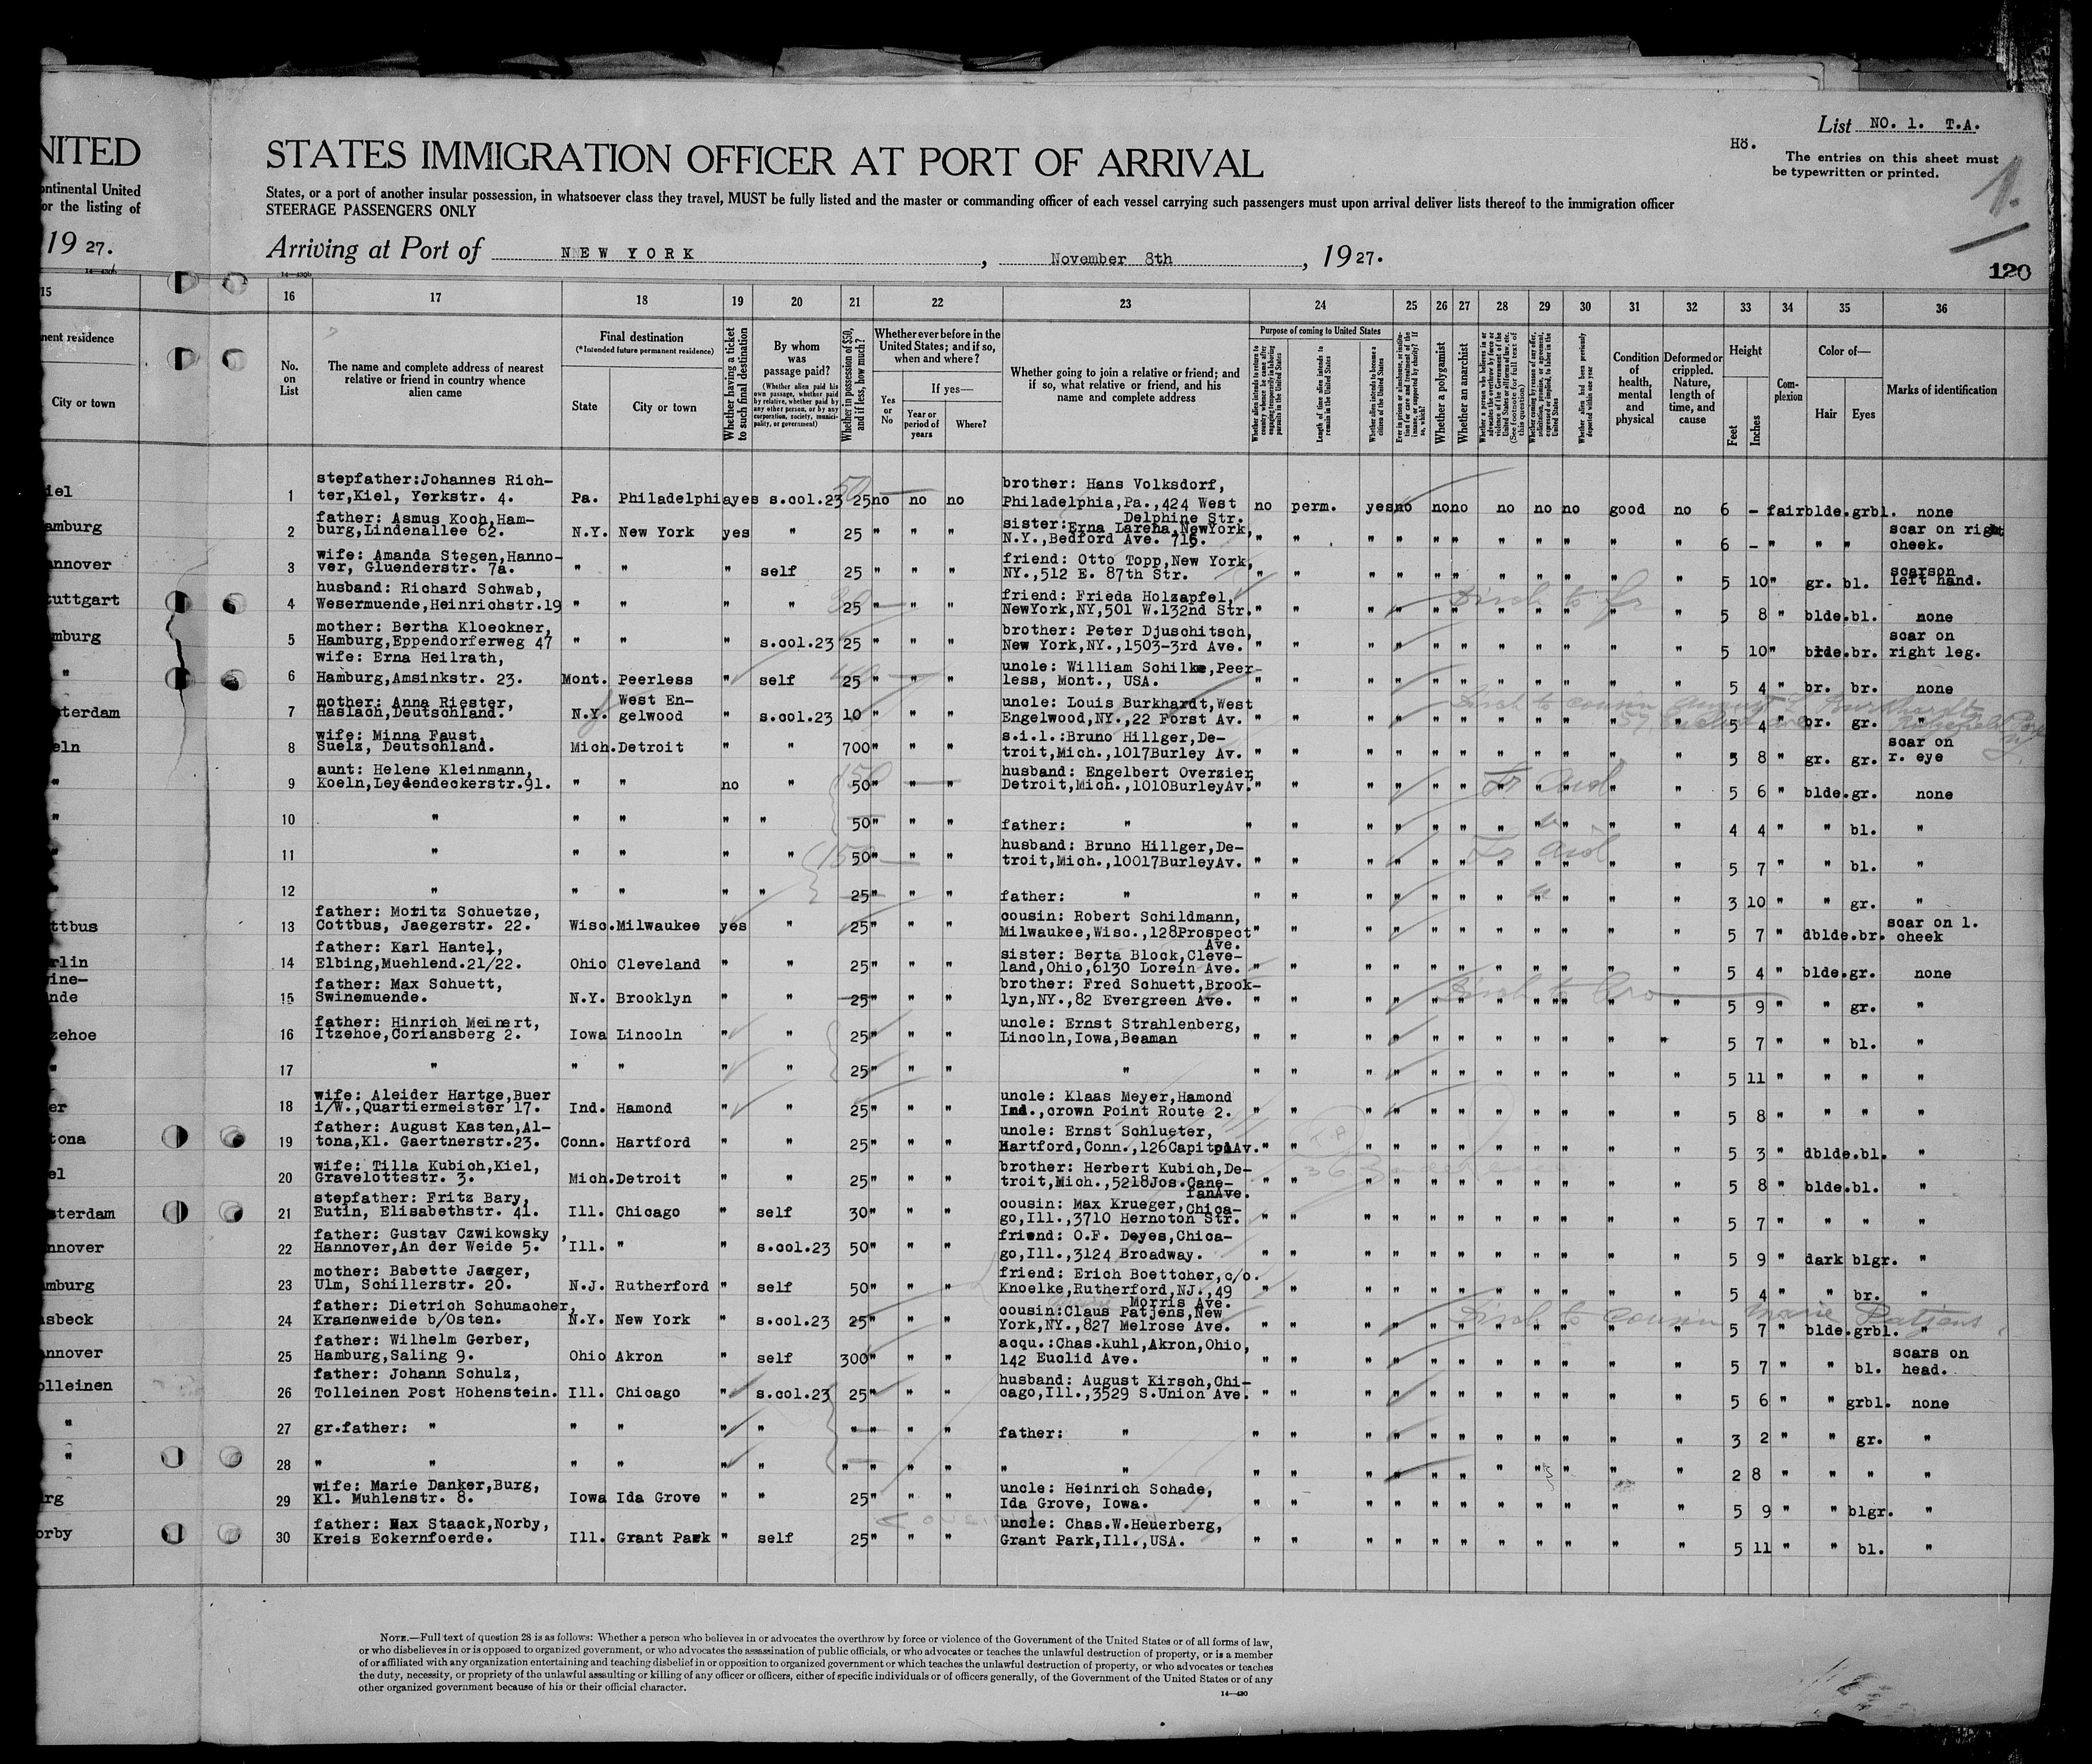 List NO. 1. T.A.
Hö.
The entries on this sheet must
be typewritten or printed.
1.
NITED
STATES IMMIGRATION OFFICER AT PORT OF ARRIVAL
ontinental United
or the listing of
States, or a port of another insular possession, in whatsoever class they travel, MUST be fully listed and the master or commanding officer of each vessel carrying such passengers must upon arrival deliver lists thereof to the immigration officer
STEERAGE PASSENGERS ONLY
19 27.
Arriving at Port of NEW YORK, November 8th, 19 27.
120
15 16 17 18 19 20 21 22 23 24 25 26 27 28 29 30 31 32 33 34 35 36
nent residence
City or town
No. on List
The name and complete address of nearest relative or friend in country whence alien came
Final destination
(*Intended future permanent residence)
State
City or town
Whether having a ticket to such final destination
By whom was passage paid?
(Whether alien paid his own passage, whether paid by relative, whether paid by any other person, or by any corporation, society, municipality, or government)
Whether in possession of $50, and if less, how much?
Whether ever before in the United States; and if so, when and where?
Yes or No
If yes—
Year or period of years
Where?
Whether going to join a relative or friend; and if so, what relative or friend, and his name and complete address
Purpose of coming to United States
Length of time alien intends to remain in the United States
Whether alien intends to become a citizen of the United States
Whether a polygamist
Whether an anarchist
Whether alien had been previously deported within one year
Condition of health, mental and physical
Deformed or crippled. Nature, length of time, and cause
Height
Feet
Inches
Complexion
Color of—
Hair
Eyes
Marks of identification
iel 1 stepfather:Johannes Rich-
ter,Kiel, Yerkstr. 4. Pa. Philadelphia yes s.col.23 25 no no no brother: Hans Volksdorf,
Philadelphia,Pa.,424 West
Delphine Str. no perm. yes no no no no no no good no 6 - fair blde. grbl. none
amburg 2 father: Asmus Koch,Ham-
burg,Lindenallee 62. N.Y. New York yes " 25 " " " sister:Erna Larena,NewYork,
N.Y.,Bedford Ave. 715. " " " " " " " " " " " 6 - " " " scar on right
cheek.
nnover 3 wife: Amanda Stegen,Hanno-
ver, Gluenderstr. 7a. " " " self 25 " " " friend: Otto Topp,New York,
NY.,512 E. 87th Str. " " " " " " " " " " " 5 10 " gr. bl. scarson
left hand.
tuttgart 4 husband: Richard Schwab,
Wesermuende,Heinrichstr.19 " " " " 25 " " " friend: Frieda Holzapfel,
NewYork,NY,501 W.132nd Str. " " " " " " " " " " " 5 8 " blde. bl. none
mburg 5 mother: Bertha Kloeckner,
Hamburg,Eppendorferweg 47 " " " s.col.23 25 " " " brother: Peter Djuschitsch,
New York,NY.,1503-3rd Ave. " " " " " " " " " " " 5 10 " blde. br. scar on
right leg.
" 6 wife: Erna Heilrath,
Hamburg,Amsinkstr. 23. Mont. Peerless " self 25 " " " uncle: William Schilke,Peer-
less, Mont., USA. " " " " " " " " " " " 5 4 " br. br. none
sterdam 7 mother: Anna Riester,
Haslach,Deutschland. N.Y. West En-
gelwood " s.col.23 10 " " " uncle: Louis Burkhardt,West
Engelwood,NY.,22 Forst Av. " " " " " " " " " " " 5 4 " br. gr. "
eln 8 wife: Minna Faust,
Suelz, Deutschland. Mich. Detroit " " 700 " " " s.i.l.:Bruno Hillger,De-
troit,Mich.,1017Burley Av. " " " " " " " " " " " 5 8 " gr. gr. scar on
r. eye
" 9 aunt: Helene Kleinmann,
Koeln,Leydendeckerstr.91. " " no " 50 " " " husband: Engelbert Overzier
Detroit,Mich.,1010BurleyAv. " " " " " " " " " " " 5 6 " blde. gr. none
" 10 " " " " " 50 " " " father: " " " " " " " " " " " " 4 4 " " bl. "
" 11 " " " " " 50 " " " husband: Bruno Hillger,De-
troit,Mich.,10017BurleyAv. " " " " " " " " " " " 5 7 " " bl. "
" 12 " " " " " 25 " " " father: " " " " " " " " " " " " 3 10 " " gr. "
ttbus 13 father: Moritz Schuetze,
Cottbus, Jaegerstr. 22. Wisc. Milwaukee yes " 25 " " " cousin: Robert Schildmann,
Milwaukee,Wisc.,128Prospect
Ave. " " " " " " " " " " " 5 7 " dblde. br. scar on l.
cheek
rlin 14 father: Karl Hantel,
Elbing,Muehlend.21/22. Ohio Cleveland " " 25 " " " sister: Berta Block,Cleve-
land,Ohio,6130 Lorein Ave. " " " " " " " " " " " 5 4 " blde. gr. none
ine-
nde 15 father: Max Schuett,
Swinemuende. N.Y. Brooklyn " " 25 " " " brother: Fred Schuett,Brook-
lyn,NY.,82 Evergreen Ave. " " " " " " " " " " " 5 9 " " gr. "
zehoe 16 father: Hinrich Meinert,
Itzehoe,Coriansberg 2. Iowa Lincoln " " 25 " " " uncle: Ernst Strahlenberg,
Lincoln,Iowa,Beaman " " " " " " " " " " " 5 7 " " bl. "
" 17 " " " " " 25 " " " " " " " " " " " " " " " " 5 11 " " " "
er 18 wife: Aleider Hartge,Buer
i/W.,Quartiermeister 17. Ind. Hamond " " 25 " " " uncle: Klaas Meyer,Hamond
Ind.,crown Point Route 2. " " " " " " " " " " " 5 8 " " " "
tona 19 father: August Kasten,Al-
tona,Kl. Gaertnerstr.23. Conn. Hartford " " 25 " " " uncle: Ernst Schlueter,
Hartford,Conn.,126CapitolAv. " " " " " " " " " " " 5 3 " dblde. bl. "
el 20 wife: Tilla Kubich,Kiel,
Gravelottestr. 3. Mich. Detroit " " 25 " " " brother: Herbert Kubich,De-
troit,Mich.,5218Jos.Cane-
fanAve. " " " " " " " " " " " 5 8 " blde. bl. "
sterdam 21 stepfather: Fritz Bary,
Eutin, Elisabethstr. 41. Ill. Chicago " self 30 " " " cousin: Max Krueger,Chica-
go,Ill.,3710 Hernoton Str. " " " " " " " " " " " 5 7 " " " "
nnover 22 father: Gustav Czwikowsky,
Hannover,An der Weide 5. Ill. " " s.col.23 50 " " " friend: O.F. Deyes,Chica-
go,Ill.,3124 Broadway. " " " " " " " " " " " 5 9 " dark blgr. "
amburg 23 mother: Babette Jaeger,
Ulm, Schillerstr. 20. N.J. Rutherford " self 50 " " " friend: Erich Boettcher,c/o.
Knoelke,Rutherford,NJ.,49
Morris Ave. " " " " " " " " " " " 5 4 " " br. "
sbeck 24 father: Dietrich Schumacher,
Kranenweide b/Osten. N.Y. New York " s.col.23 25 " " " cousin:Claus Patjens,New
York,NY.,827 Melrose Ave. " " " " " " " " " " " 5 7 " blde. grbl. "
nnover 25 father: Wilhelm Gerber,
Hamburg,Saling 9. Ohio Akron " self 300 " " " acqu.:Chas.Kuhl,Akron,Ohio,
142 Euclid Ave. " " " " " " " " " " " 5 7 " " bl. scars on
head.
olleinen 26 father: Johann Schulz,
Tolleinen Post Hohenstein. Ill. Chicago " s.col.23 25 " " " husband: August Kirsch,Chi-
cago,Ill.,3529 S.Union Ave. " " " " " " " " " " " 5 6 " " grbl. none
" 27 gr.father: " " " " " " " " " father: " " " " " " " " " " " " 3 2 " " gr. "
" 28 " " " " " " " " " " " " " " " " " " " " " " " 2 8 " " " "
rg 29 wife: Marie Danker,Burg,
Kl. Muhlenstr. 8. Iowa Ida Grove " " 25 " " " uncle: Heinrich Schade,
Ida Grove, Iowa. " " " " " " " " " " " 5 9 " " blgr. "
orby 30 father: Max Staack,Norby,
Kreis Eckernfoerde. Ill. Grant Park " self 25 " " " uncle: Chas.W.Heuerberg,
Grant Park,Ill.,USA. " " " " " " " " " " " 5 11 " " bl. "
NOTE.—Full text of question 28 is as follows: Whether a person who believes in or advocates the overthrow by force or violence of the Government of the United States or of all forms of law,
or who disbelieves in or is opposed to organized government, or who advocates the assassination of public officials, or who advocates or teaches the unlawful destruction of property, or is a member
of or affiliated with any organization entertaining and teaching disbelief in or opposition to organized government or which teaches the unlawful destruction of property, or who advocates or teaches
the duty, necessity, or propriety of the unlawful assaulting or killing of any officer or officers, either of specific individuals or of officers generally, of the Government of the United States or of any
other organized government because of his or their official character.
14—430